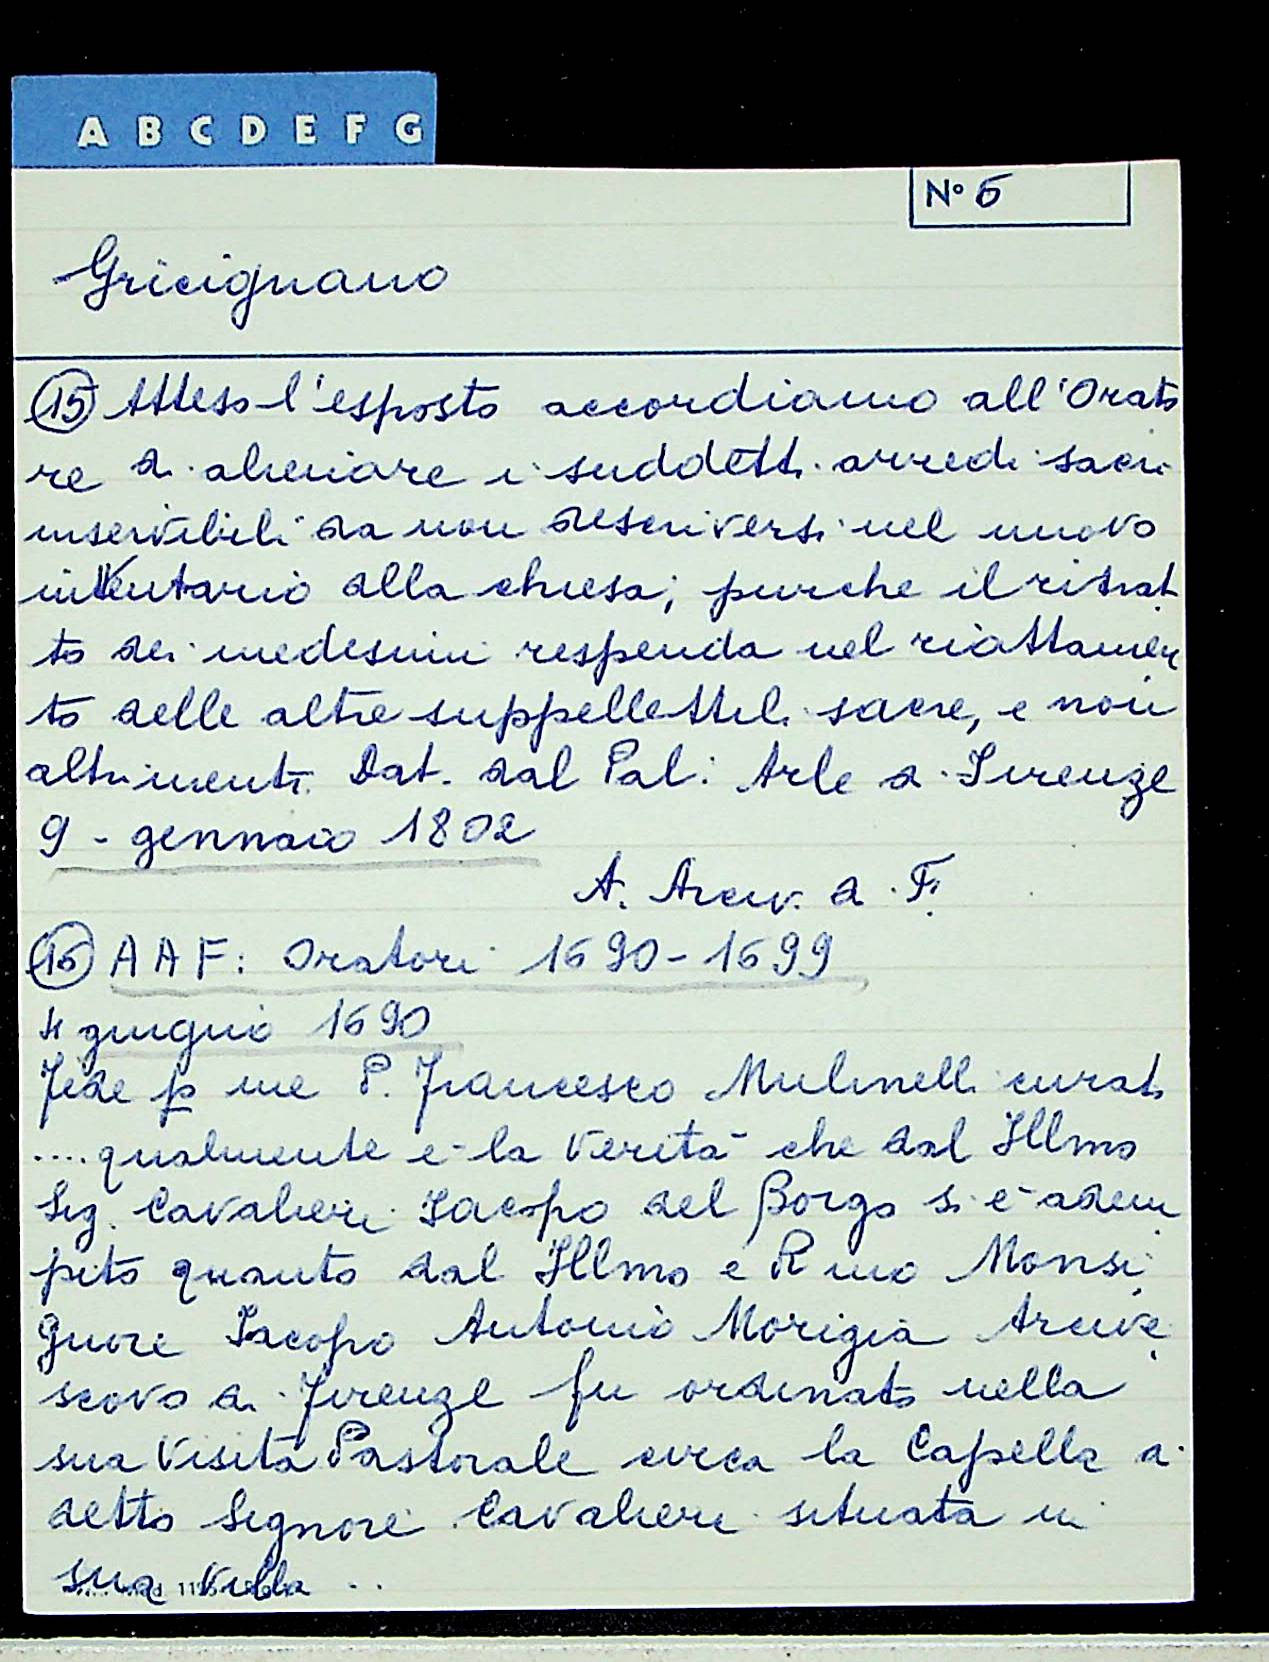 A B C D E F G
N° 6
Gricignano
(15) Atteso l'esposto accordiamo all'Orato
re di alieniare i suddetti arredi sacri
inservibili da non descriversi nel nuovo
inventario alla chiesa; purche il ritrat
to dei medesimi respenda nel riattamen
to delle altre suppellettili sacre, e non
altrimenti Dat. dal Pal: Arle di Firenze
9 - gennaio 1802
A. Arciv. di F.
(16) A A F: Oratori 1690-1699
4 giugnio 1690
Fede p me P. Francesco Mulinelli curato
....qualmente e la verità che dal Illmo
Sig. Cavaliere Iacopo del Borgo si è adem
pito quanto dal Illmo e R mo Monsi
gnore Iacopo Antonio Morigia Arcive
scovo di Firenze fu ordinato nella
sua Visita Pastorale circa la Capella di
detto Signore Cavaliere situata in
sua villa ..